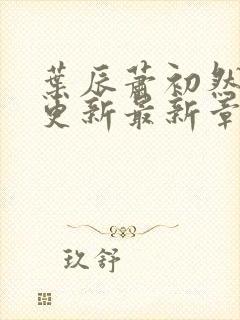 葉辰蕭初然
更新最新章
玖舒